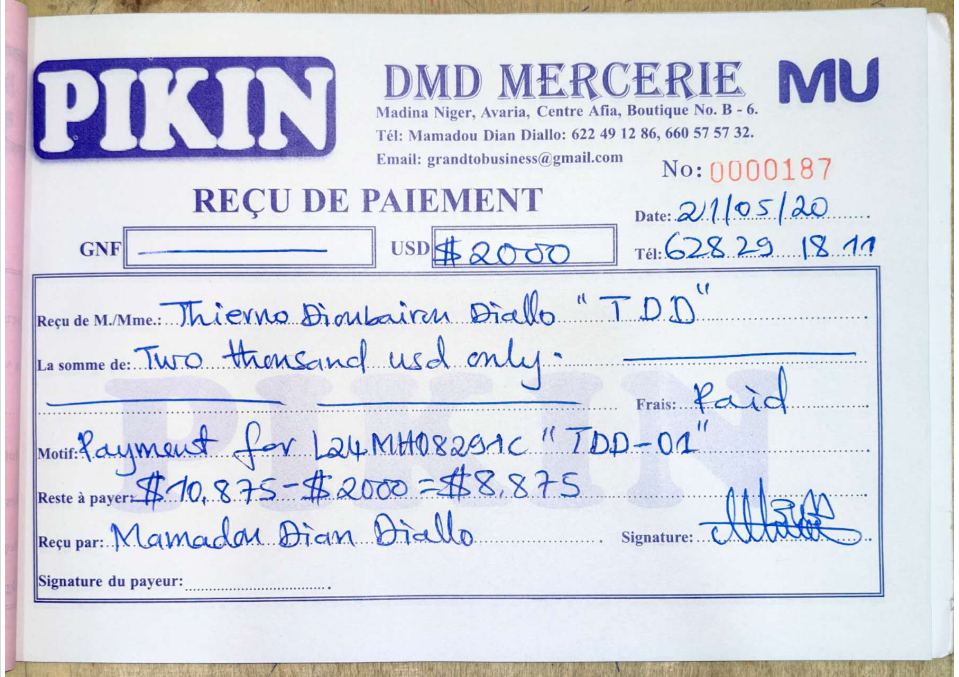 PIKIN
DMD MERCERIE
MU
Madina Niger, Avaria, Centre Afia, Boutique No. B - 6.
Tél: Mamadou Dian Diallo: 622 49 12 86, 660 57 57 32.
Email: grandtobusiness@gmail.com
No: 0000187
REÇU DE PAIEMENT
Date: 21/05/20
GNF
USD $2000
Tél: 628 29 18 11
Reçu de M./Mme.: Thierno Dioubairou Diallo "TDD"
La somme de: Two thousand usd only.
Frais: Paid
Motif: Payment for L24MH08291C "TDD-01"
Reste à payer: $10,875-$2000=$8,875
Reçu par: Mamadou Dian Diallo
Signature:
Signature du payeur:
PIKIN